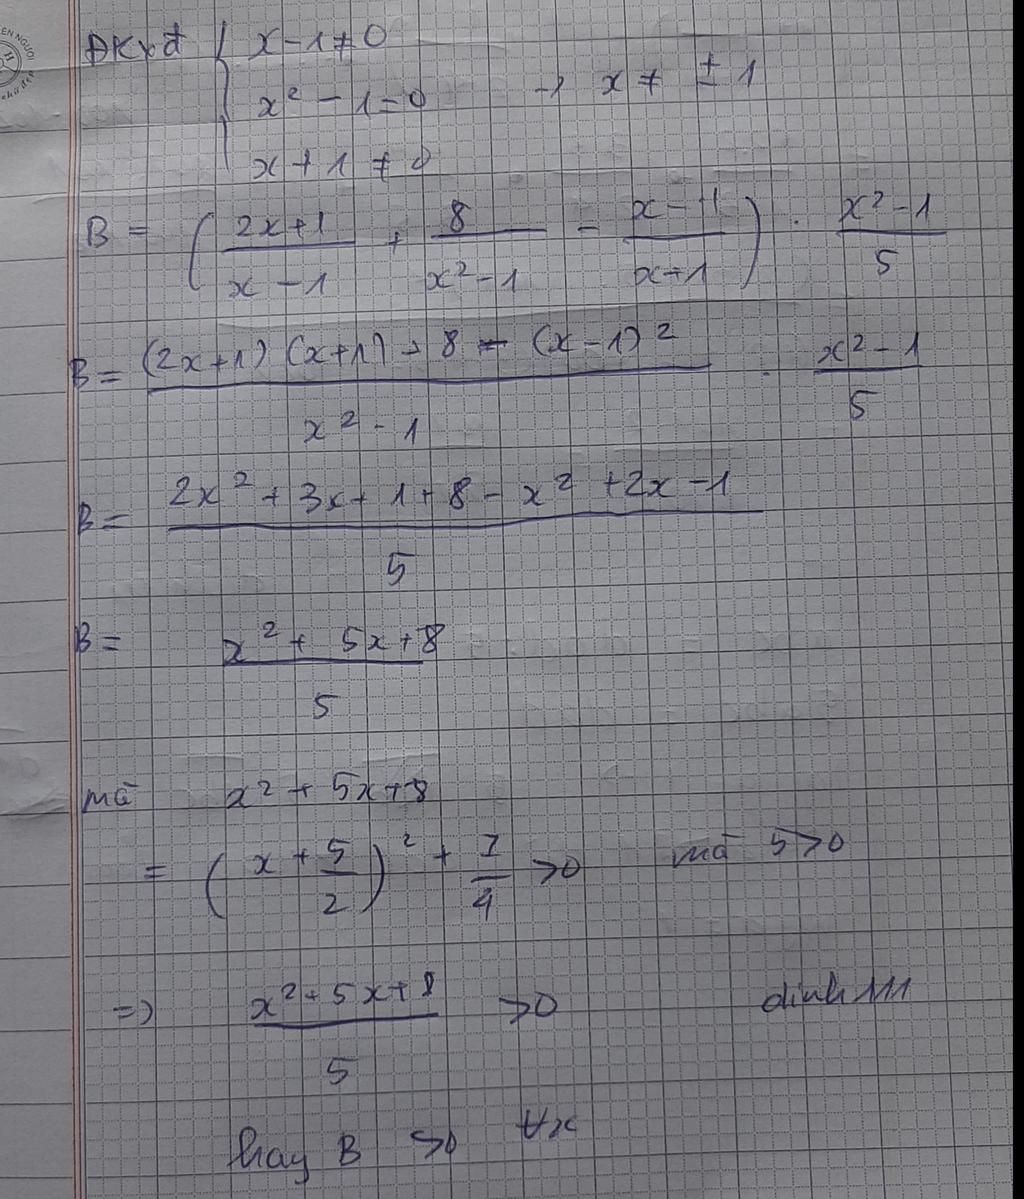 ĐKxđ { x-1≠0
x² - 1=0 → x ≠ ± 1
x + 1 ≠ 0
B = ( (2x+1)/(x-1) + 8/(x²-1) - (x-1)/(x+1) ) . (x²-1)/5
B = ((2x+1)(x+1) + 8 - (x-1)²)/(x²-1) . (x²-1)/5
B = (2x² + 3x + 1 + 8 - x² + 2x - 1)/5
B = (x² + 5x + 8)/5
mà x² + 5x + 8
= (x + 5/2)² + 7/4 >0 mà 5>0
=> (x² + 5x + 8)/5 >0
hay B >0 ∀x